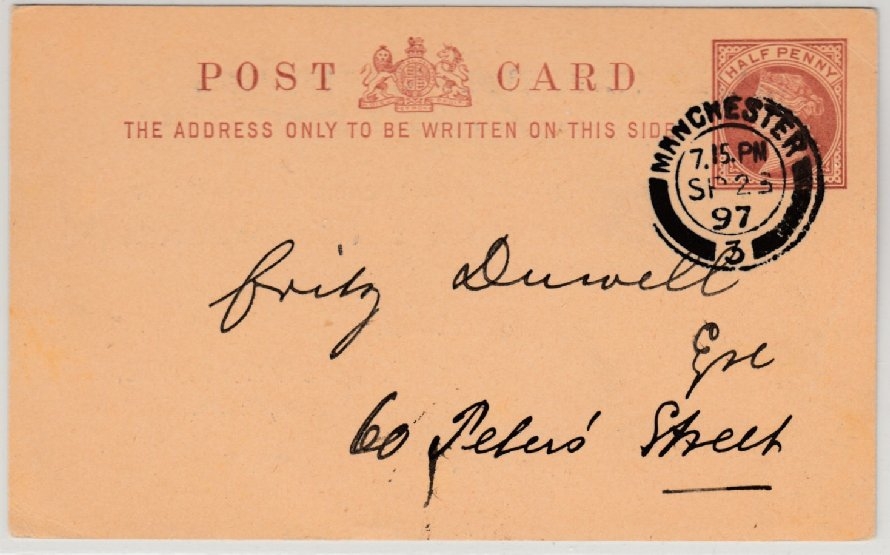 POST CARD
THE ADDRESS ONLY TO BE WRITTEN ON THIS SIDE
HALF PENNY
MANCHESTER
7.15.PM
SP 23
97
3
Fritz Duwell
Esq
60 Peters' Street